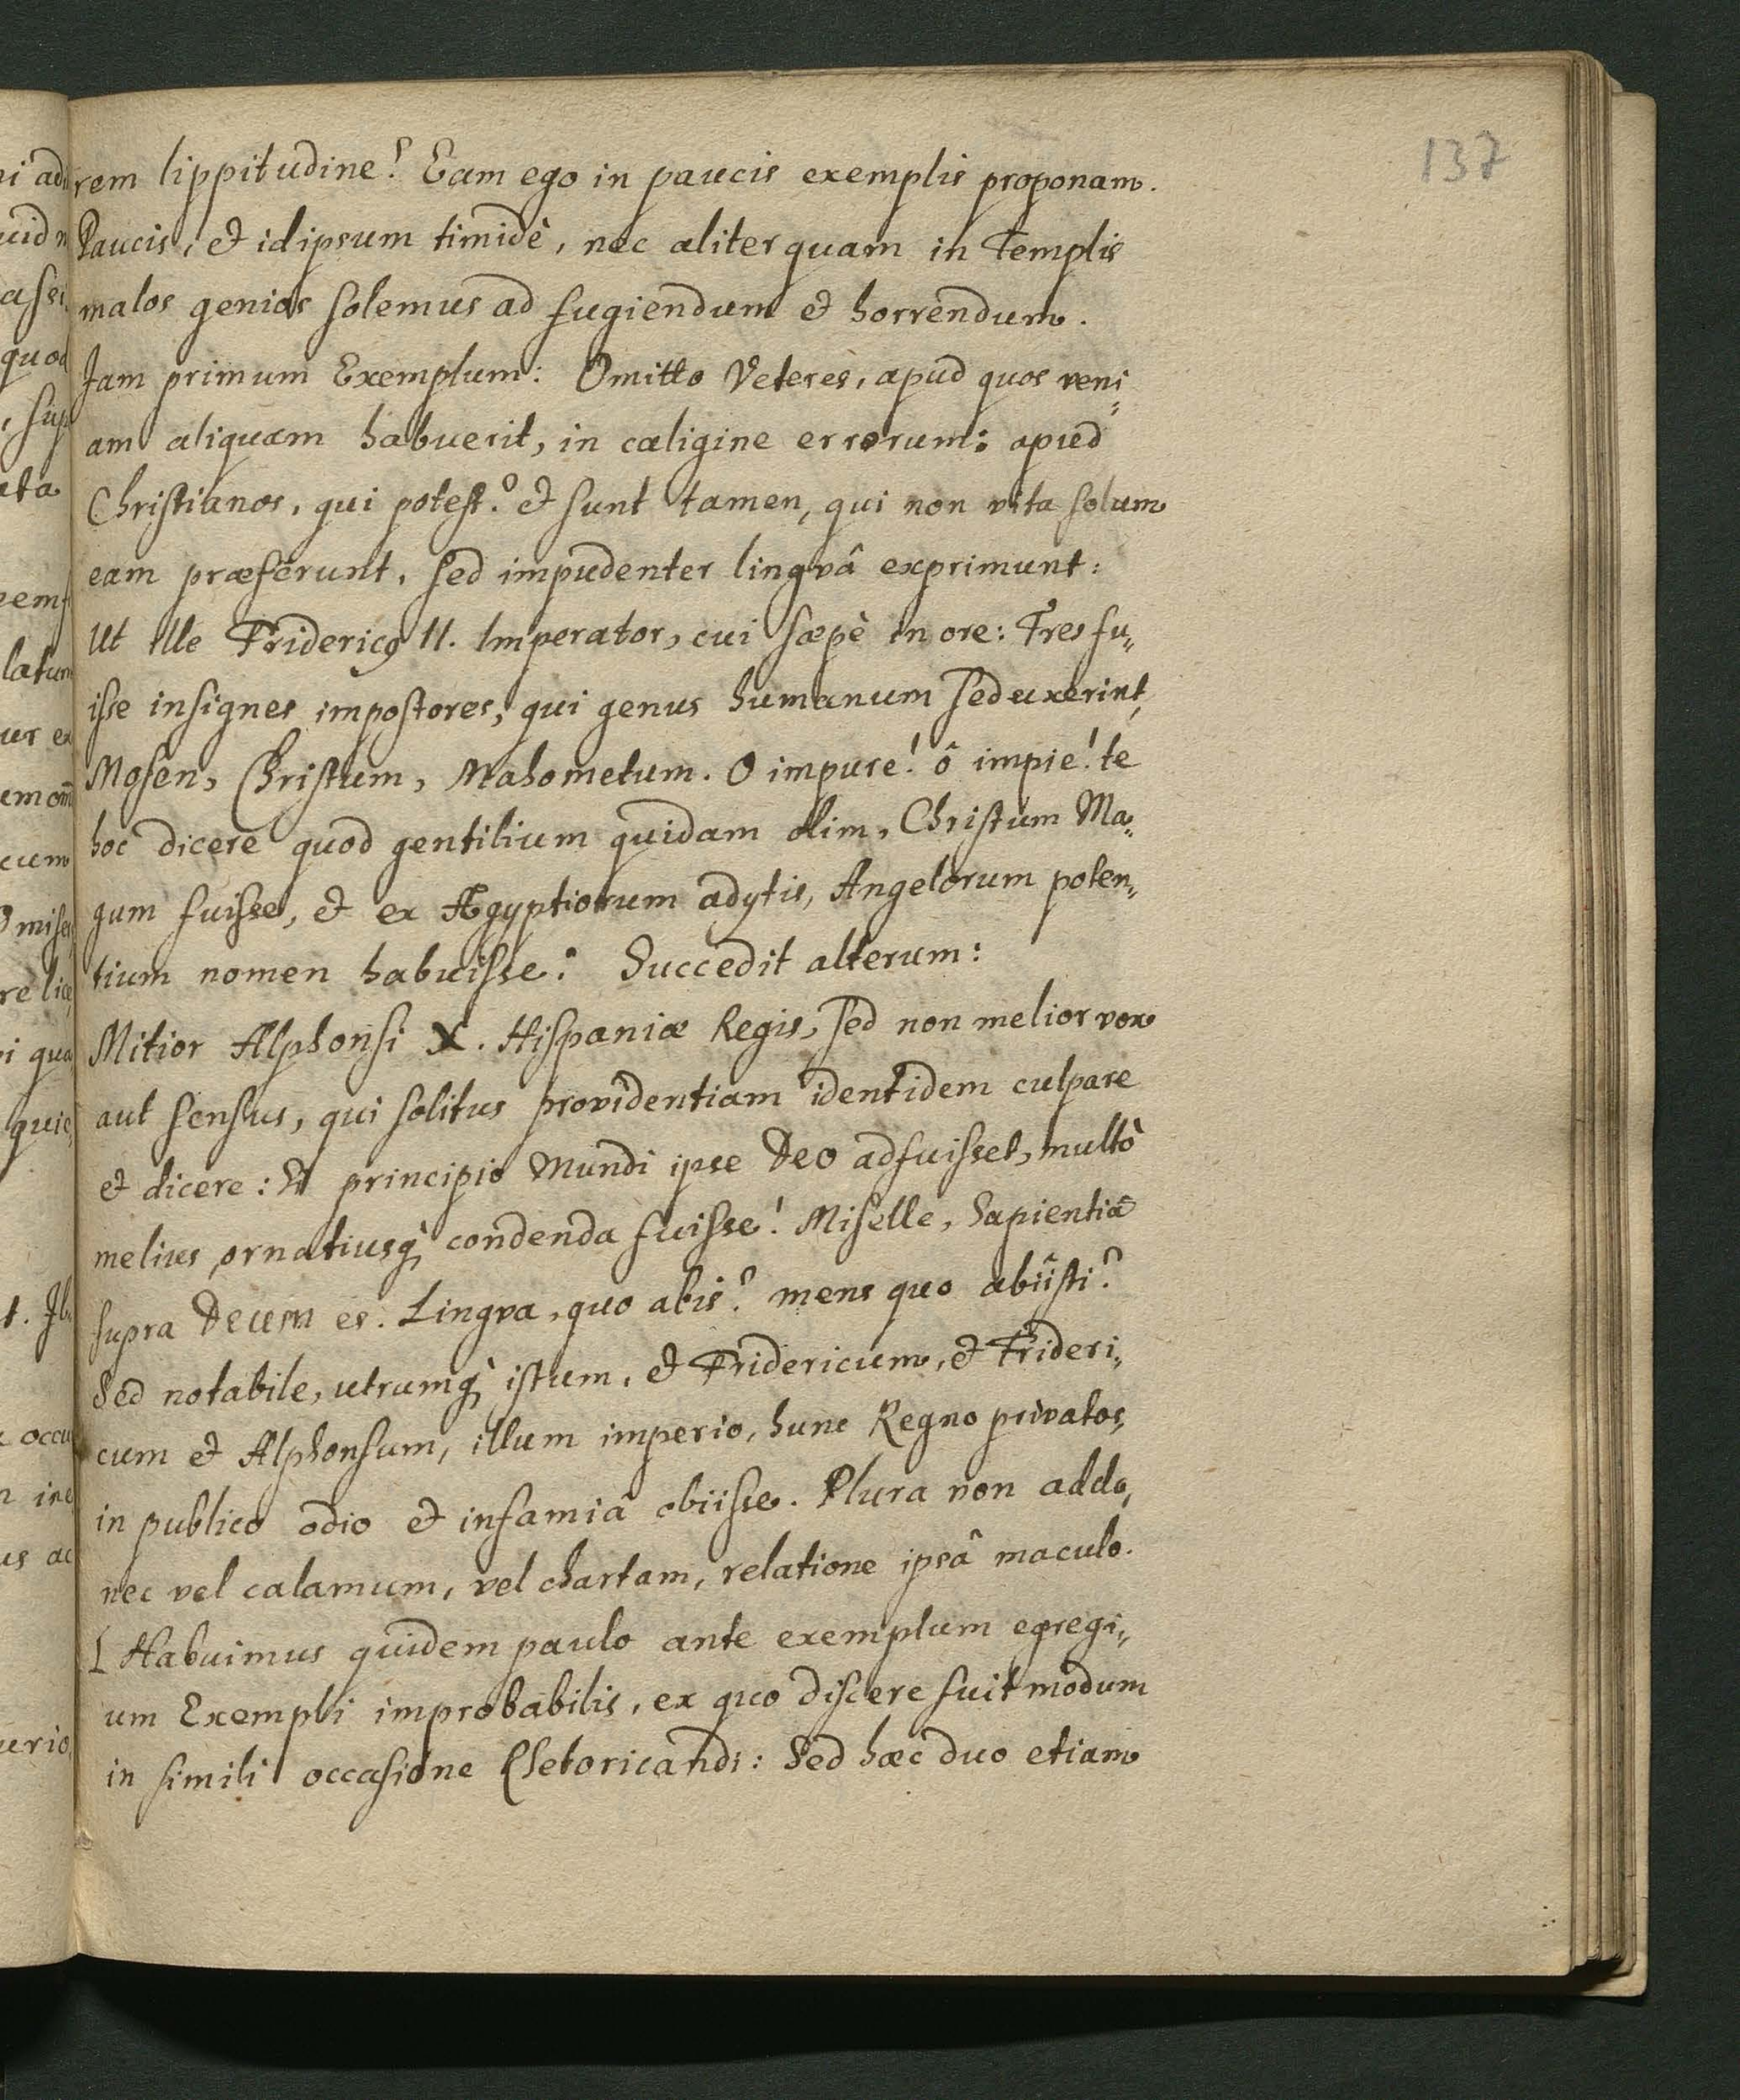 137
rem lippitudine? Eam ego in paucis exemplis proponam.
Paucis, et idipsum timidè, nec aliter quam in Templis
malos genios solemus ad fugiendum et horrendum.
Jam primum Exemplum: Omitto Veteres, apud quos veni„
am aliquam habuerit, in caligine errorum: apud
Christianos, qui potest? et sunt tamen, qui non vita solum
eam præferunt, sed impudenter lingvâ exprimunt:
Ut ille Fridericꝰ II. Imperator, cui sæpè in ore: Tres fu„
isse insignes impostores, qui genus humanum seduxerint,
Mosen, Christum, Mahometum. O impure! ô impie! te
hoc dicere quod gentilium quidam olim, Christum Ma„
gum fuisse, et ex Ægyptiorum adytis, Angelorum poten„
tium nomen habuisse? Succedit alterum:
Mitior Alphonsi X. Hispaniæ Regis, sed non melior vox
aut sensus, qui solitus providentiam identidem culpare
et dicere: Si principio Mundi ipse Deo adfuisset, multò
melius ornatiusq̀ condenda fuisse! Miselle, Sapientiâ
supra Deum es. Lingva, quo abis? mens quo abiisti?
Sed notabile, utrumq̀ istum, et Fridericum, et Frideri„
cum et Alphonsum, illum imperio, hunc Regno privatos,
in publico odio et infamiâ obiisse. Plura non addo,
nec vel calamum, vel chartam, relatione ipsâ maculo.
Habuimus quidem paulo ante exemplum egregi„
um Exempli improbabilis, ex quo discere fuit modum
in simili occasione Rhetoricandi: Sed hæc duo etiam